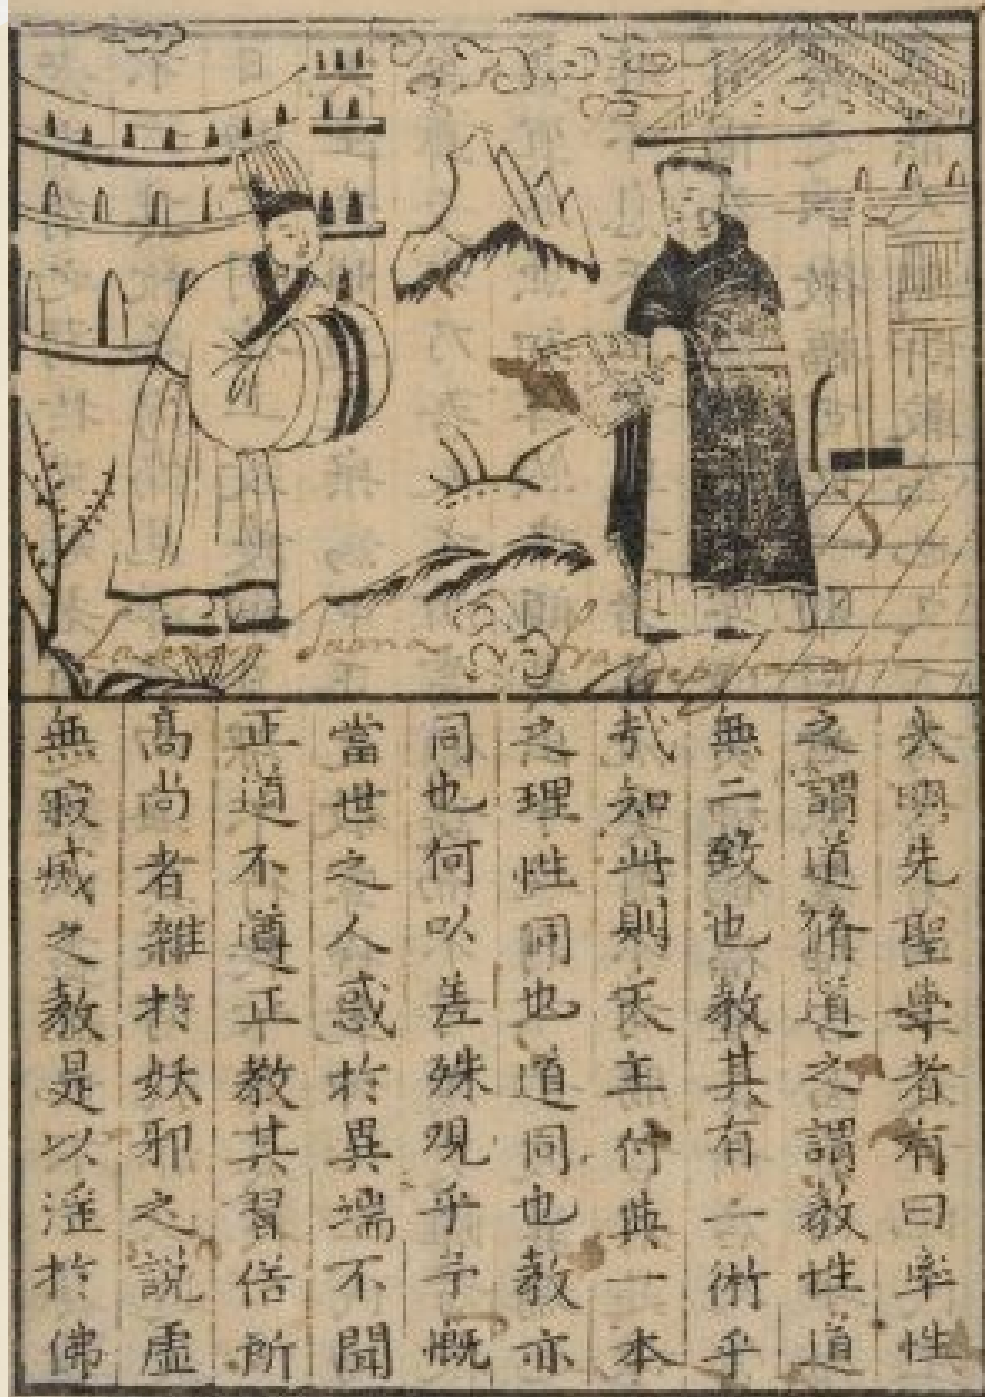 大明先聖學者有曰率性
之謂道脩道之謂教性道
無二致也教其有二術乎
哉知此則天主付與一本
之理性同也道同也教亦
同也何以差殊观乎予慨
當世之人惑於異端不聞
正道不遵正教其習俗所
高尚者雜於妖邪之説虛
無寂滅之教是以滛於佛